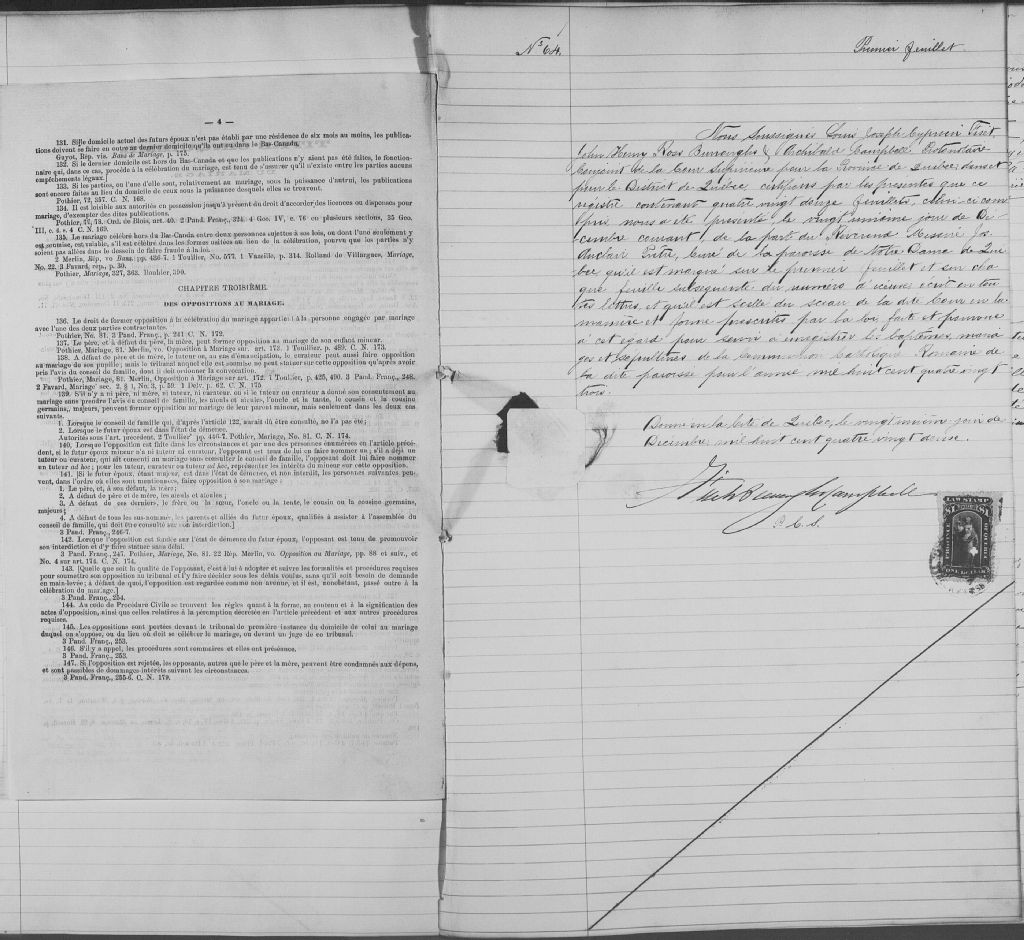 — 4 —
131. Si le domicile actuel des futurs époux n'est pas établi par une résidence de six mois au moins, les publica-
tions doivent se faire en outre au dernier domicile qu'ils ont eu dans le Bas-Canada.
Guyot, Rép. vis. Bans de Mariage, p. 175.
132. Si le dernier domicile est hors du Bas-Canada et que les publications n'y aient pas été faites, le fonction-
naire qui, dans ce cas, procède à la célébration du mariage, est tenu de s'assurer qu'il n'existe entre les parties aucuns
empêchements légaux.]
133. Si les parties, ou l'une d'elle sont, relativement au mariage, sous la puissance d'autrui, les publications
sont encore faites au lieu du domicile de ceux sous la puissance desquels elles se trouvent.
Pothier, 72, 357. C. N. 168.
134. Il est loisible aux autorités en possession jusqu'à présent du droit d'accorder des licences ou dispenses pour
mariage, d'exempter des dites publications.
Pothier, 77, 78. Ord. de Blois, art. 40. 2 Pand. Franç., 324. 4 Geo. IV, c. 76 en plusieurs sections, 35 Geo.
III, c. 4 s. 4 C. N. 169.
135. Le mariage célébré hors du Bas-Canada entre deux personnes sujettes à ses lois, ou dont l'une seulement y
est soumise, est valable, s'il est célébré dans les formes usitées au lieu de la célébration, pourvu que les parties n'y
soient pas allées dans le dessein de faire fraude à la loi.
2 Merlin, Rép. vo Bans, pp. 436-7. 1 Toullier, No. 577. 1 Vazeille, p. 314. Rolland de Villargues, Mariage,
No. 22. 3 Favard, rep., p. 30.
Pothier, Mariage, 327, 363. Bouhier, 390.
CHAPITRE TROISIÈME.
DES OPPOSITIONS AU MARIAGE.
136. Le droit de former opposition à la célébration du mariage appartient à la personne engagée par mariage
avec l'une des deux parties contractantes.
Pothier, No. 81. 3 Pand. Franç., p. 241 C. N. 172.
137. Le père, et à défaut du père, la mère, peut former opposition au mariage de son enfant mineur.
Pothier, Mariage, 81. Merlin, vo. Opposition à Mariage sur art. 173. 1 Toullier, p. 489. C. N. 173.
138. A défaut de père et de mère, le tuteur ou, au cas d'émancipation, le curateur peut aussi faire opposition
au mariage de son pupille; mais le tribunal auquel elle est soumise ne peut statuer sur cette opposition qu'après avoir
pris l'avis du conseil de famille, dont il doit ordonner la convocation.
Pothier, Mariage, 81. Merlin, Opposition à Mariage sur art. 172. 1 Toullier, p. 425, 490. 3 Pand. Franç., 248.
2 Favard, Mariage, sec. 2, § 1, No. 3, p. 59. 1 Delv. p. 62. C. N. 175
139. S'il n'y a ni père, ni mère, ni tuteur, ni curateur, ou si le tuteur ou curateur a donné son consentement au
mariage sans prendre l'avis du conseil de famille, les aïeuls et aïeules, l'oncle et la tante, le cousin et la cousine
germains, majeurs, peuvent former opposition au mariage de leur parent mineur, mais seulement dans les deux cas
suivants.
1. Lorsque le conseil de famille qui, d'après l'article 122, aurait dû être consulté, ne l'a pas été;
2. Lorsque le futur époux est dans l'état de démence.
Autorités sous l'art. précédent. 2 Toullier pp. 446-7. Pothier, Mariage, No. 81. C. N. 174.
140. Lorsque l'opposition est faite dans les circonstances et par une des personnes énumérées en l'article précé-
dent, si le futur époux mineur n'a ni tuteur ni curateur, l'opposant est tenu de lui en faire nommer un; s'il a déjà un
tuteur ou curateur, qui ait consenti au mariage sans consulter le conseil de famille, l'opposant doit lui faire nommer
un tuteur ad hoc; pour les tuteur, curateur ou tuteur ad hoc, représenter les intérêts du mineur sur cette opposition.
141. [Si le futur époux, étant majeur, est dans l'état de démence, et non interdit, les personnes suivantes peu-
vent, dans l'ordre où elles sont mentionnées, faire opposition à son mariage:
1. Le père, et, à son défaut, la mère;
2. A défaut de père et de mère, les aïeuls et aïeules;
3. A défaut de ces derniers, le frère ou la sœur, l'oncle ou la tante, le cousin ou la cousine germains,
majeurs;
4. A défaut de tous les sus-nommés, les parents et alliés du futur époux, qualifiés à assister à l'assemblée du
conseil de famille, qui doit être consulté sur son interdiction.]
3 Pand. Franç., 246-7.
142. Lorsque l'opposition est fondée sur l'état de démence du futur époux, l'opposant est tenu de promouvoir
son interdiction et d'y faire statuer sans délai.
3 Pand. Franç., 247. Pothier, Mariage, No. 81. 22 Rép. Merlin, vo. Opposition au Mariage, pp. 88 et suiv., et
No. 4 sur art. 174. C. N. 174.
143. [Quelle que soit la qualité de l'opposant, c'est à lui à adopter et suivre les formalités et procédures requises
pour soumettre son opposition au tribunal et l'y faire décider sous les délais voulus, sans qu'il soit besoin de demande
en main-levée; à défaut de quoi, l'opposition est regardée comme non avenue, et il est, nonobstant, passé outre à la
célébration du mariage.]
3 Pand. Franç., 254.
144. Au code de Procédure Civile se trouvent les règles quant à la forme, au contenu et à la signification des
actes d'opposition, ainsi que celles relatives à la péremption décrétée en l'article précédent et aux autres procédures
requises.
145. Les oppositions sont portées devant le tribunal de première instance du domicile de celui au mariage
duquel on s'oppose, ou du lieu où doit se célébrer le mariage, ou devant un juge de ce tribunal.
3 Pand. Franç., 253.
146. S'il y a appel, les procédures sont sommaires et elles ont préséance.
3 Pand. Franç., 253.
147. Si l'opposition est rejetée, les opposants, autres que le père et la mère, peuvent être condamnés aux dépens,
et sont passibles de dommages-intérêts suivant les circonstances.
3 Pand. Franç., 235-6. C. N. 179.
No 64. Premier feuillet
Nous soussignés Louis Joseph Cyprien Fiset
John Henry Ross Burroughs & Archibald Campbell Protonotaire
Conjoint de la Cour Supérieure pour la Province de Québec, dans et
pour le District de Québec certifions par les présentes que ce
registre contenant quatre vingt douze feuillets, celui-ci com
pris nous a été présenté le vingt unième jour de Dé
cembre courant, de la part du Révérend Messire Jos
Auclair Prêtre, Curé de la paroisse de Notre Dame de Qué
bec qu'il est marqué sur le premier feuillet et sur cha
que feuille subséquente du numéro d'icelles écrit en tou
tes lettres, et qu'il est scellé du sceau de la dite Cour en la
manière et forme prescrites par la loi, faite et pourvue
à cet égard pour servir à enregistrer les baptêmes, maria
ges et sépultures de la Communion Catholique Romaine de
la dite paroisse pour l'année mil huit cent quatre vingt
trois.
Donné en la Cité de Québec, le vingt unième jour de
Décembre mil huit cent quatre vingt deux.
Fiset Burroughs Campbell
P. C. S.
LAW STAMP
$1 $1
ONE DOLLAR